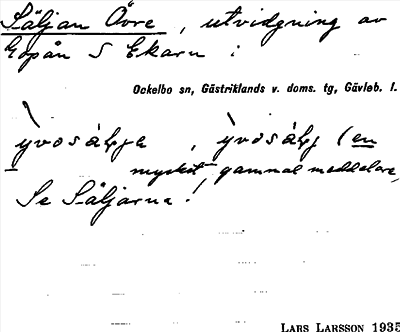 Säljan Övre, utvidgning av
Kopån S Ekarn i
Ockelbo sn, Gästriklands v. doms. tg, Gävleb. l.
(en
mycket gammal meddelare)
Se Säljarna!
LARS LARSSON 1935